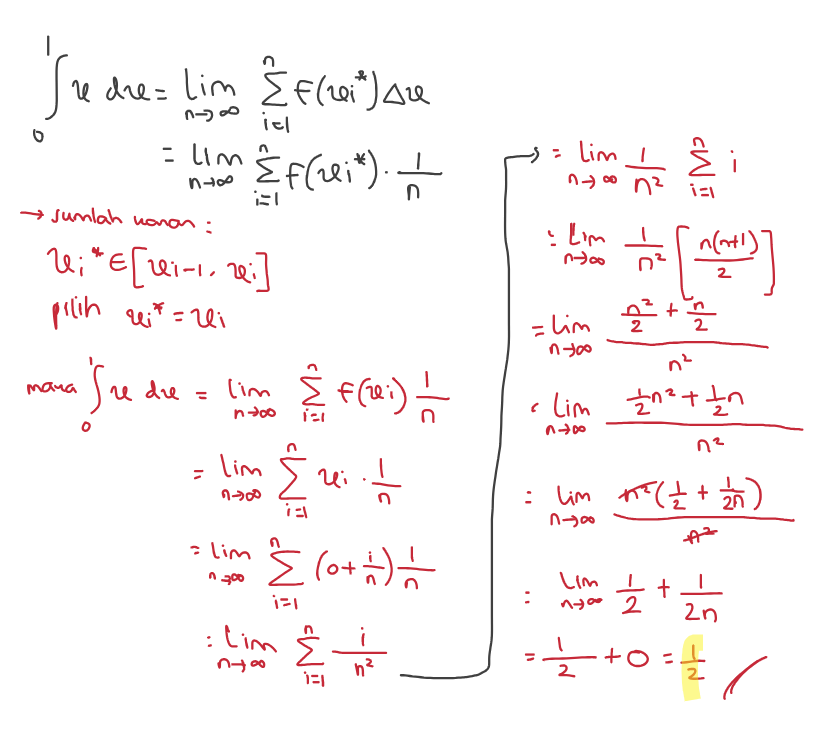 ∫₀¹ x dx = lim_{n→∞} Σ_{i=1}^{n} f(xi*) Δx
= lim_{n→∞} Σ_{i=1}^{n} f(xi*) · 1/n
→ Jumlah kanan :
xi* ∈ [xi-1, xi]
pilih xi* = xi
maka ∫₀¹ x dx = lim_{n→∞} Σ_{i=1}^{n} f(xi) 1/n
= lim_{n→∞} Σ_{i=1}^{n} xi · 1/n
= lim_{n→∞} Σ_{i=1}^{n} (0 + i/n) 1/n
= lim_{n→∞} Σ_{i=1}^{n} i/n²
= lim_{n→∞} 1/n² Σ_{i=1}^{n} i
= lim_{n→∞} 1/n² [n(n+1)/2]
= lim_{n→∞} (n²/2 + n/2)/n²
= lim_{n→∞} (1/2 n² + 1/2 n)/n²
= lim_{n→∞} n²(1/2 + 1/2n)/n²
= lim_{n→∞} 1/2 + 1/2n
= 1/2 + 0 = 1/2